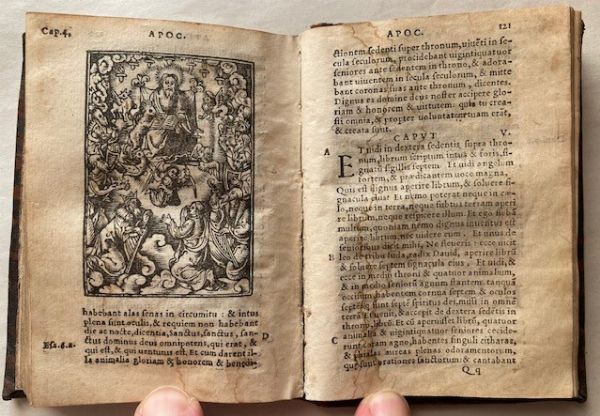 Cap.4. APOC.
habebant alas senas in circuitu : & intus
plena sunt oculis, & requiem non habebant
die ac nocte, dicentia, sanctus, sanctus, san-
ctus dominus deus omnipotens, qui erat, & D
Esa.6.a. qui est, & qui uenturus est. Et cum darent il-
la animalia gloriam & honorem & benedi-
APOC. 121
ctionem sedenti super thronum, uiuēti in se
cula seculorum, procidebant uigintiquatuor
seniores ante sedentem in throno, & adora-
bant uiuentem in secula seculorum, & mitte
bant coronas suas ante thronum, dicentes.
Dignus es domine deus noster accipere glo-
riam & honorem & uirtutem: quia tu crea-
sti omnia, & propter uoluntatem tuam erāt,
& creata sunt.
CAPVT V.
A ET uidi in dextera sedentis supra thro-
num, librum scriptum intus & foris, si-
gnatū sigillis septem. Et uidi angelum
fortem, & prædicantem uoce magna,
Qui est dignus aperire librum, & soluere si-
gnacula eius? Et nemo poterat neque in cæ-
lo, neque in terra, neque subtus terram aperi
re librum, neque respicere illum. Et ego flebā
multum, quoniam nemo dignus inuentus est
aperire librum, nec uidere eum. Et unus de
senioribus dixit mihi, Ne fleueris: ecce uicit
B leo de tribu Iuda, radix Dauid, aperire librū
& soluere septem signacula eius. Et uidi, &
ecce in medio throni & quatuor animalium,
& in medio seniorū agnum stantem tanquā
occisum habentem cornua septem & oculos
septem qui sunt septē spiritus dei, missi in omnē
terram. Et uenit, & accepit de dextera sedētis in
throno, librū. Et cū aperuisset librū, quatuor
C animalia, & uigintiquatuor seniores cecide-
runt coram agno, habentes singuli citharas,
& phialas aureas plenas odoramentorum,
quæ sunt orationes sanctorum: & cantabant
Q q